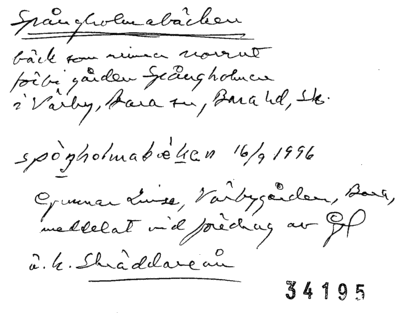 Spångholmabäcken
bäck som rinner norrut
förbi gården Spångholmen
i Värby, Bara sn, Bara hd, Sk.
spòŋholmabɛ̀kən 16/9 1996
Gunnar Linse, Värbygården, Bara,
meddelat vid föredrag av
ä. k. Skräddareån
34195